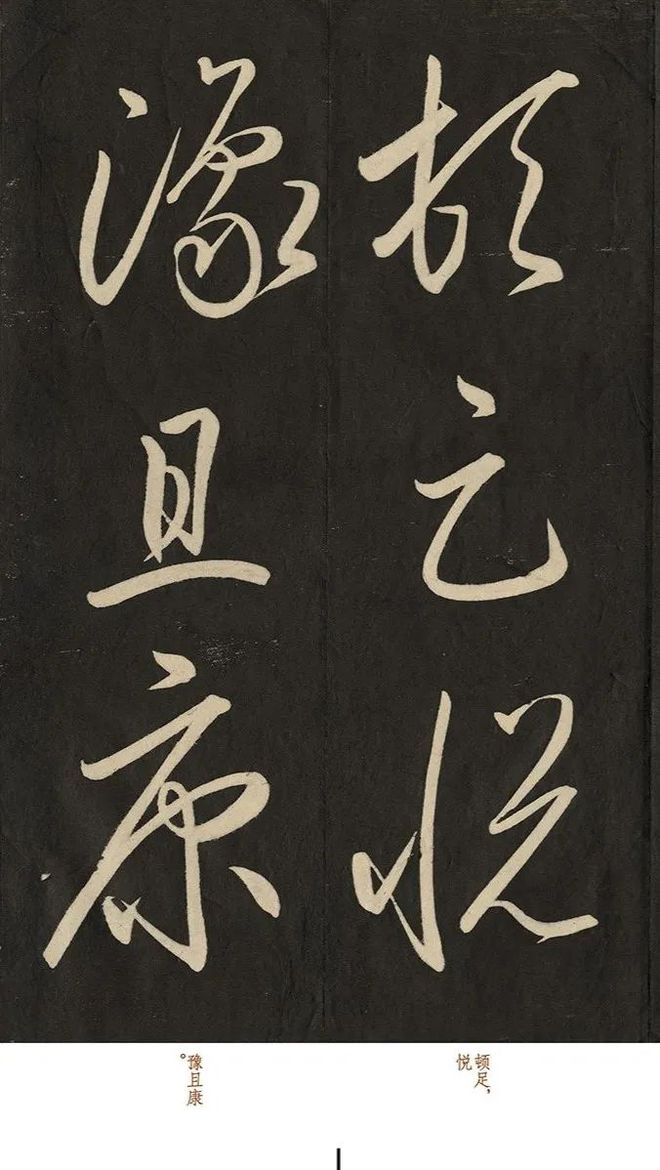 頓足悦
豫且康
顿足，
悦
豫且康
。